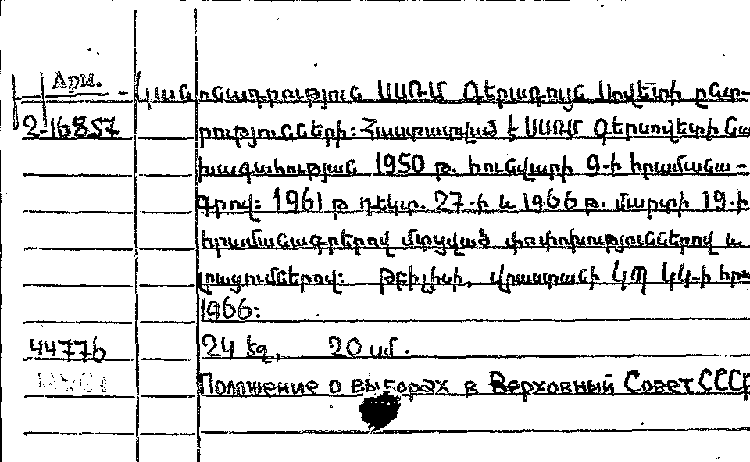 Арм.
Կանոնադրություն ՍՍՌՄ Գերագույն Սովետի ընտ-
2-16857
րությունների: Հաստատված է ՍՍՌՄ Գերսովետի Նա
խագահության 1950 թ. հունվարի 9-ի հրամանա-
գրով: 1961 թ դեկտ. 27-ի և 1966 թ. մարտի 19-ի
հրամանագրերով մտցված փոփոխություններով և
լրացումներով: Թբիլիսի, Վրաստանի ԿՊ ԿԿ-ի հրա
1966:
44776
24 էջ, 20 սմ.
Положение о выборах в Верховный Совет СССР